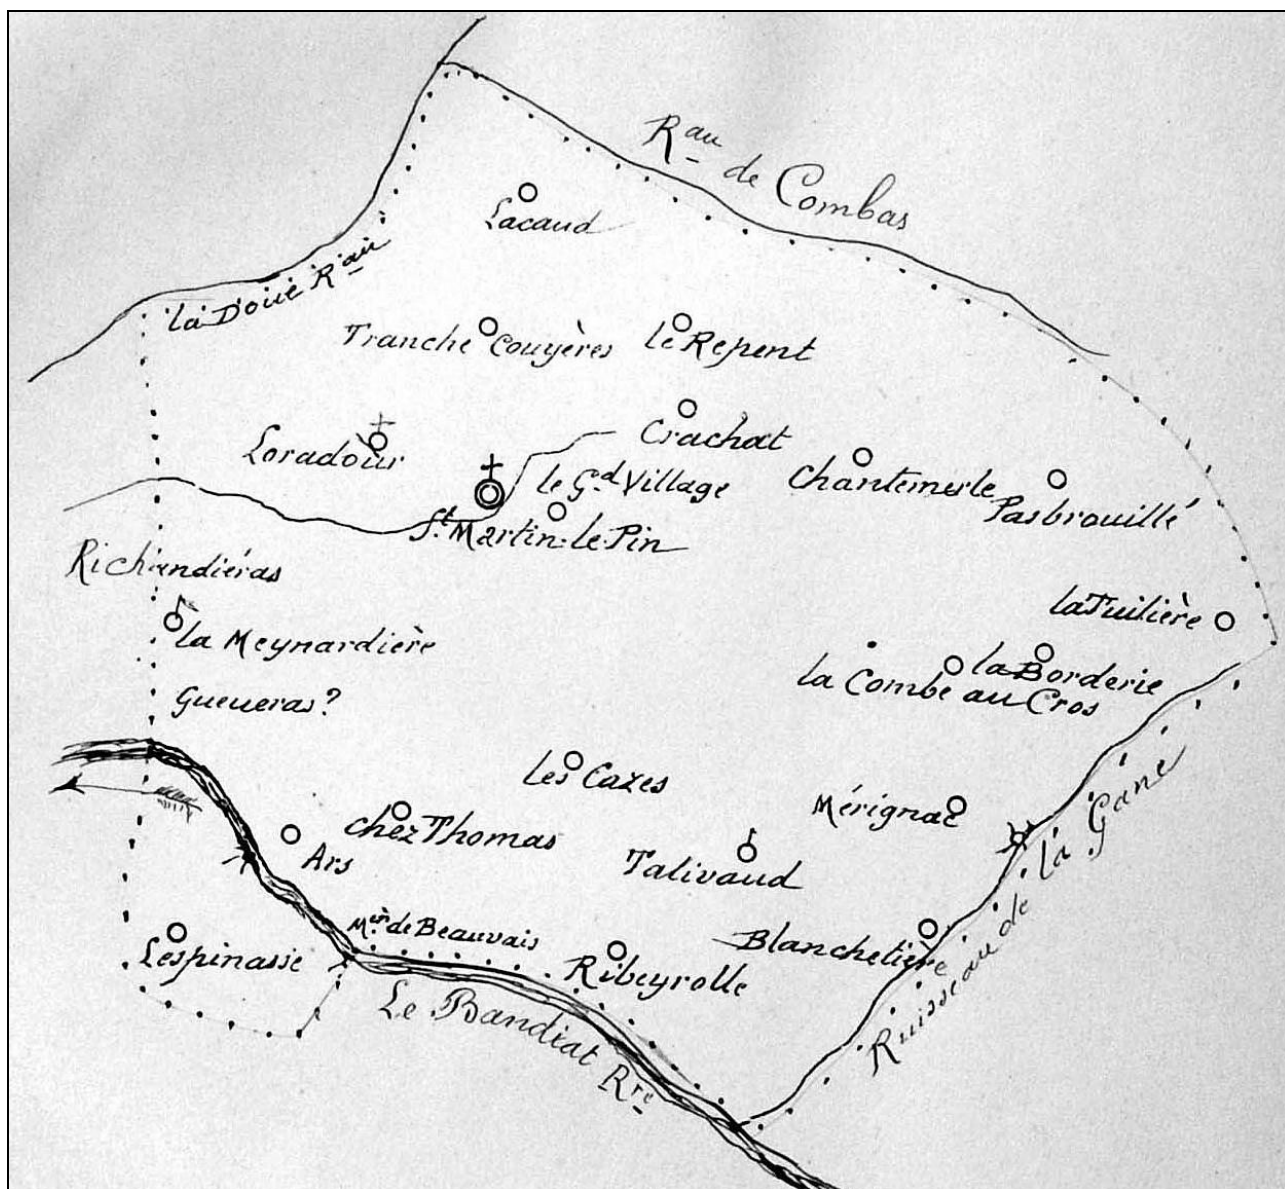 Rau de Combas
Lacaud
la Doue Rau
Tranche Couyères
le Repent
Crachat
Loradour
le Gd Village
Chantemerle
Pasbrouillé
St Martin-le-Pin
Richandiéras
la Tuilière
la Meynardière
la Borderie
la Combe au Cros
Gueueras?
Les Cazes
Mérignac
chez Thomas
Ars
Talivaud
Min de Beauvais
Blanchetière
Lespinasse
Ribeyrolle
Ruisseau de la Gane
Le Bandiat Rre